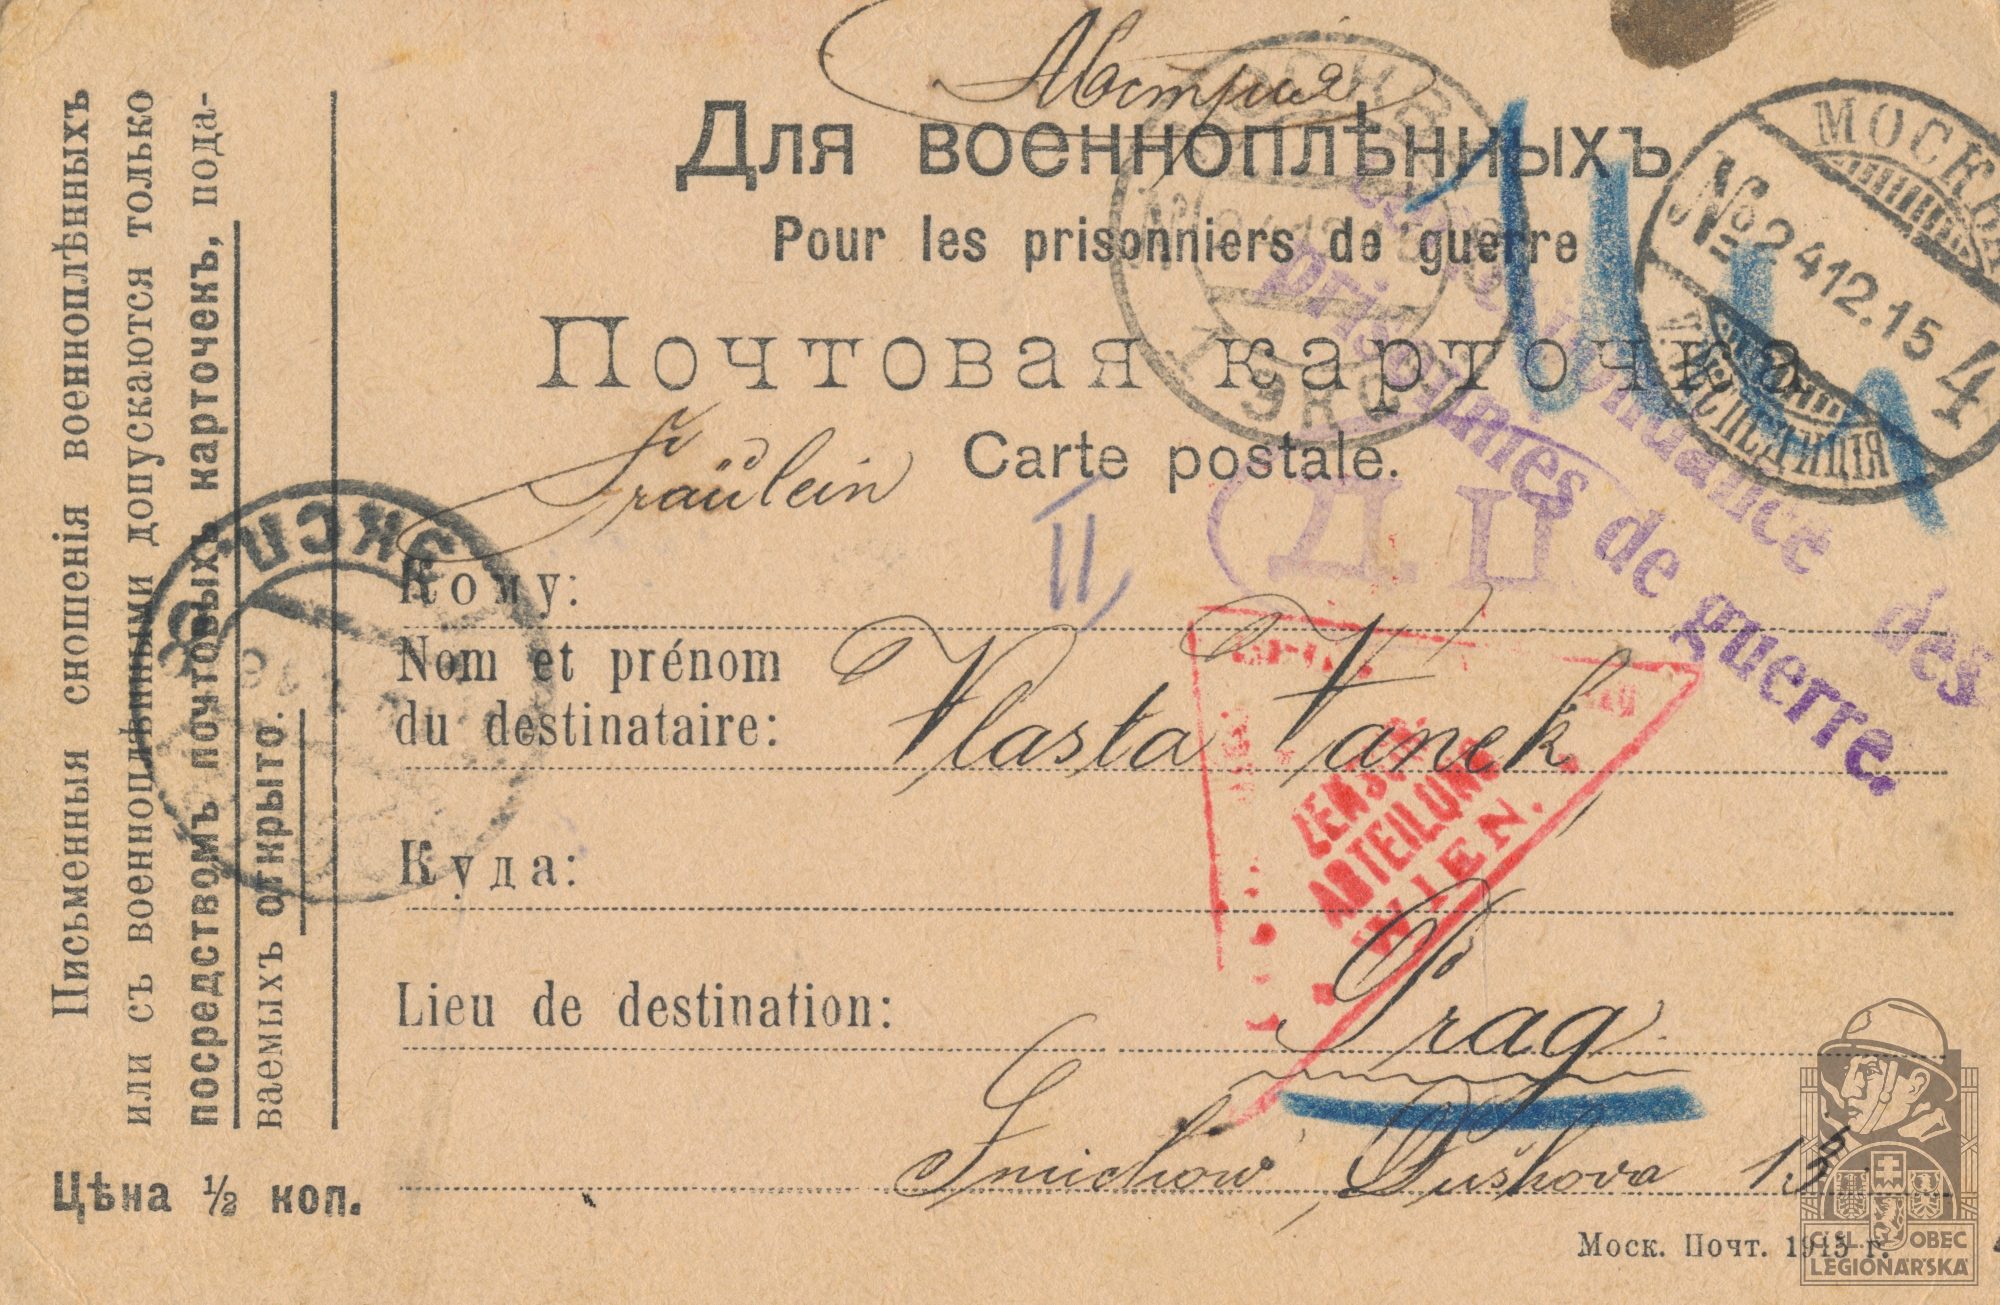 Австрия
Для военноплѣнныхъ
Pour les prisonniers de guerre
Почтовая карточка
Carte postale.
Fräulein
II
Кому:
Nom et prénom
du destinataire:
Vlasta Vanek
Куда:
Prag
Lieu de destination:
Smichow Dušková 13
Моск. Почт. 1915 г.
Письменныя сношенія военноплѣнныхъ
или съ военноплѣнными допускаются только
посредствомъ почтовыхъ карточекъ, пода-
ваемыхъ открыто.
Цѣна ½ коп.
МОСКВА
24 12.15
4
МОСКВА
ЭКС
ЭКСП.
Д Ц
correspondance des
prisonniers de guerre.
ZENSUR
ABTEILUNG
WIEN.
ČSL. OBEC
LEGIONÁŘSKÁ